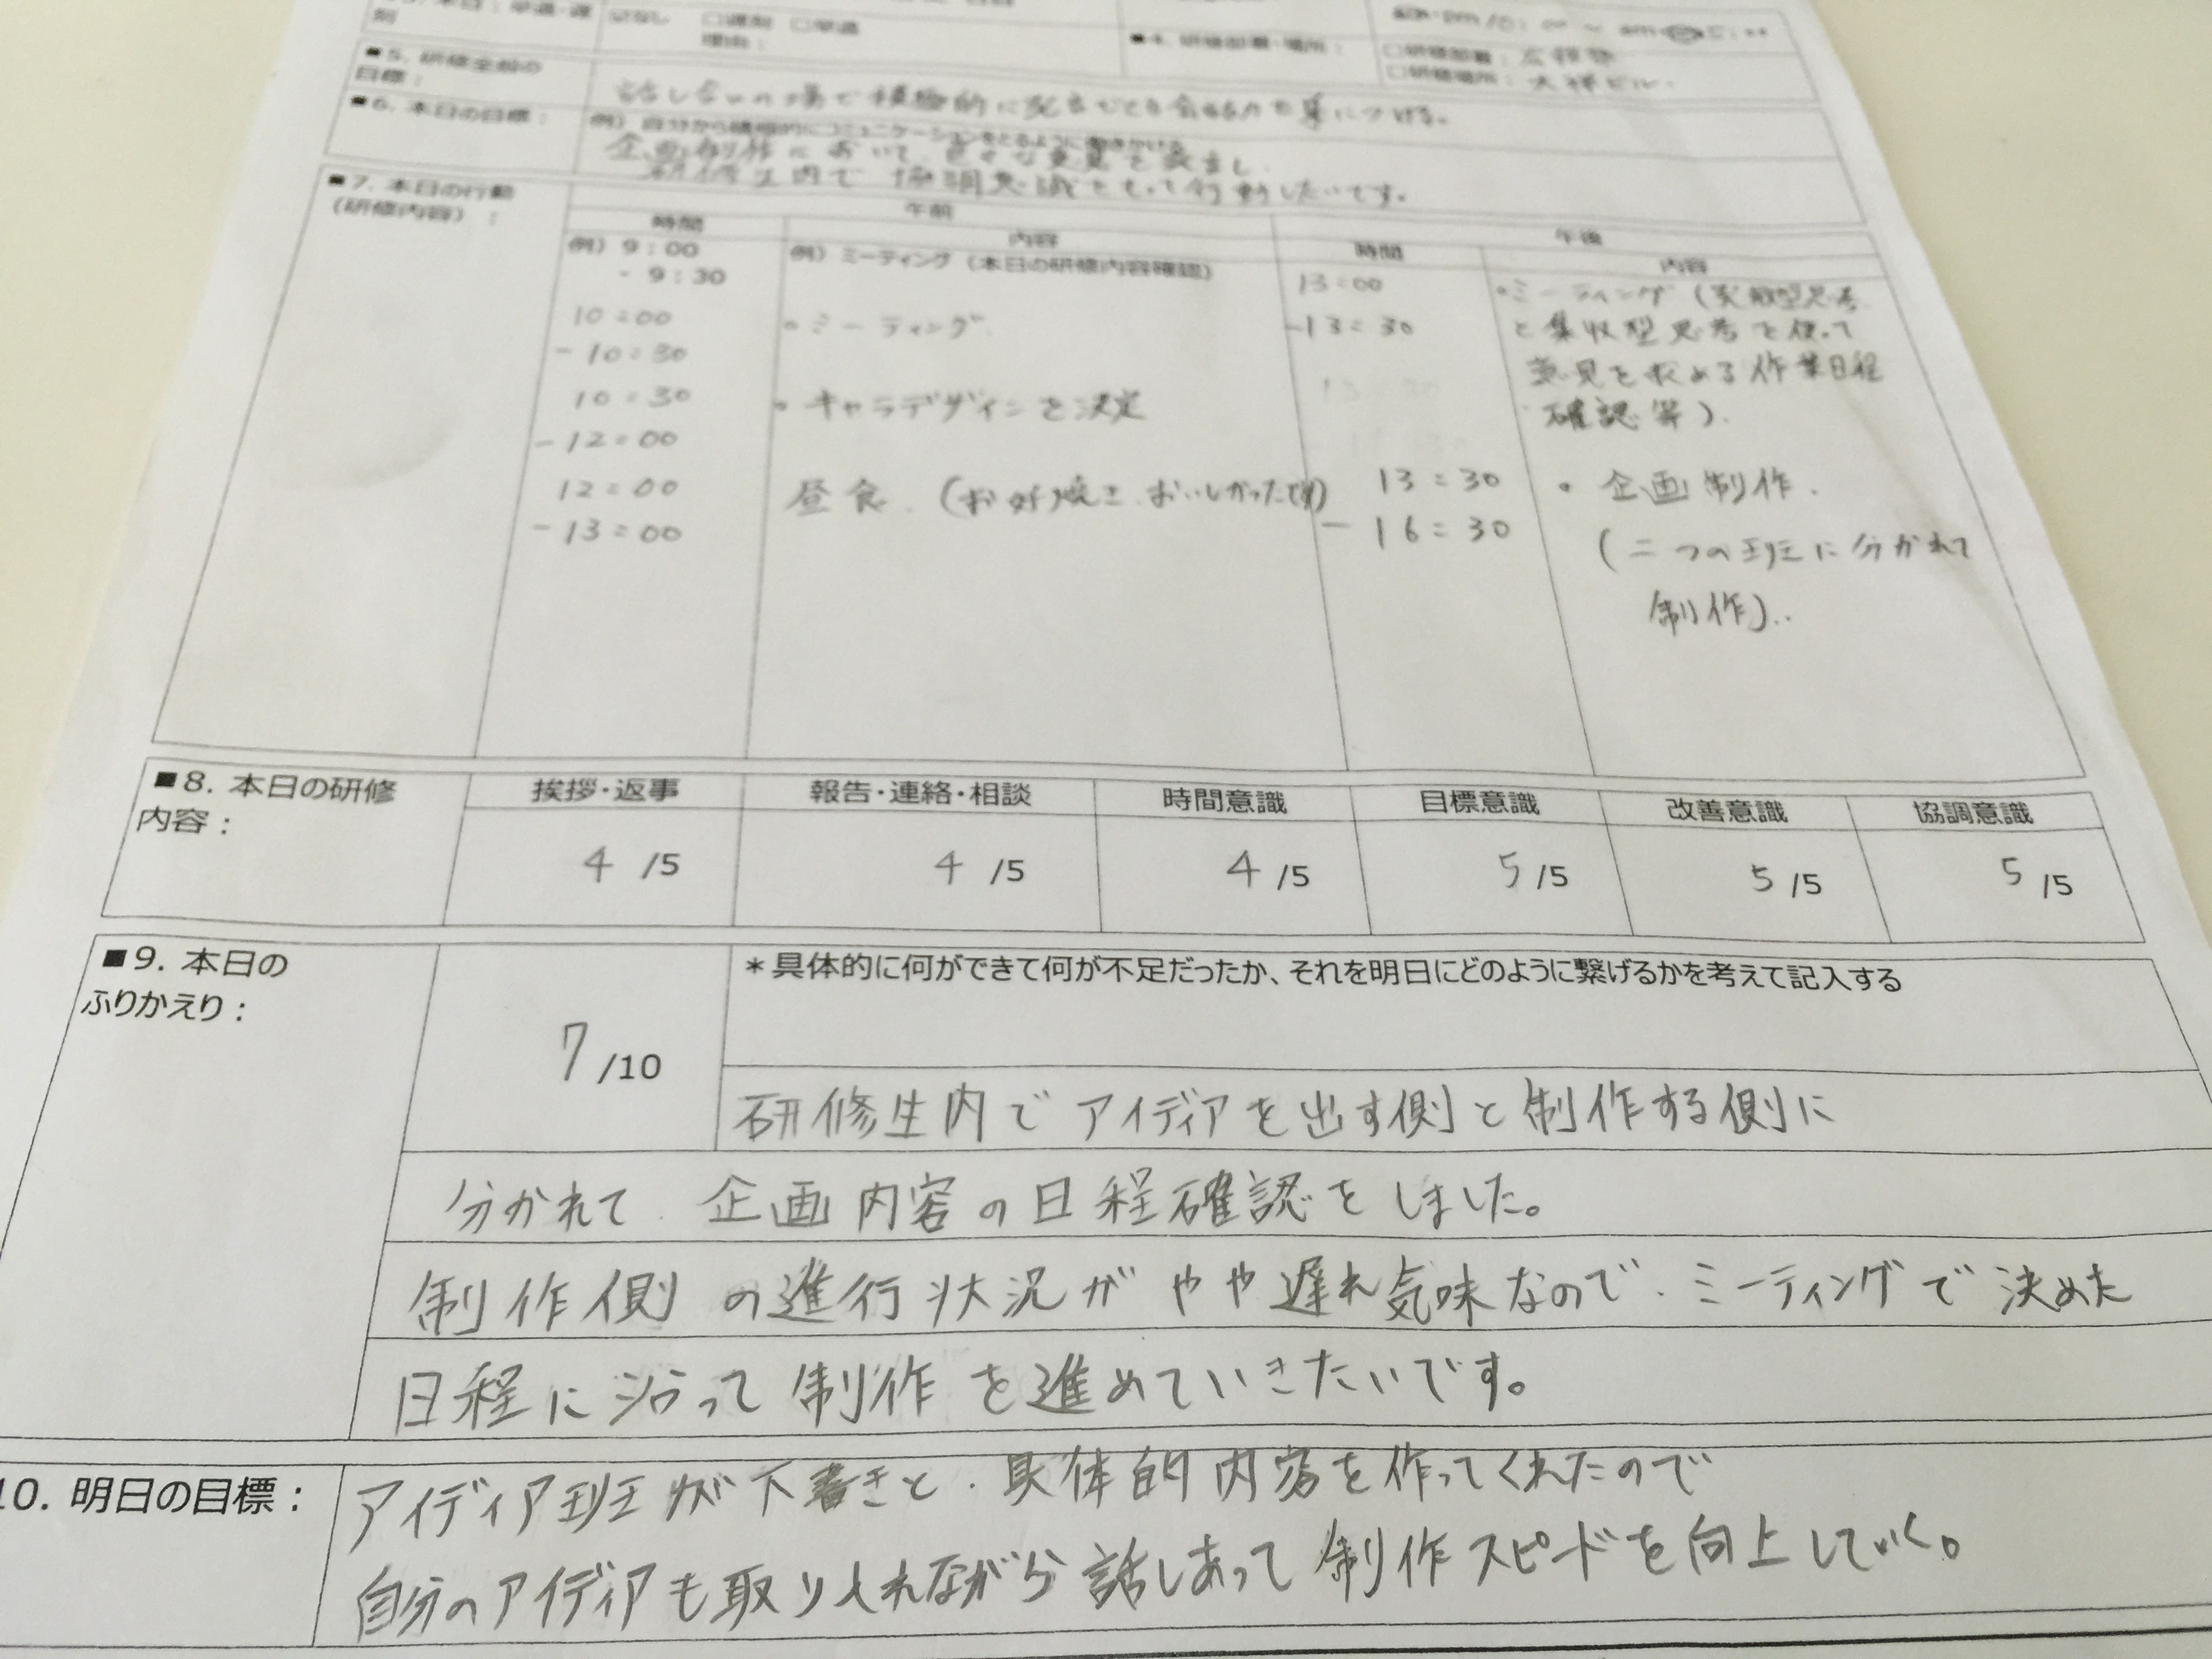 ■5. 研修全般の
目標：
■6. 本日の目標：
企画制作において、色々な意見を
研修生内で協調意識をもって行動したいです。
■7. 本日の行動
（研修内容）：
午前
午後
時間
内容
時間
内容
例）9：00
- 9：30
例）ミーティング（本日の研修内容確認）
10:00
- 10:30
・ミーティング
10:30
- 12:00
・キャラデザインを決定
12:00
- 13:00
昼食.（お好焼き.おいしかったです）
13:00
- 13:30
・ミーティング（
と集収型思考を使って
意見を求める作業日程
確認等）.
13:30
- 16:30
・企画制作.
（二つの班に分かれて
制作）..
■8. 本日の研修
内容：
挨拶・返事
報告・連絡・相談
時間意識
目標意識
改善意識
協調意識
4 /5
4 /5
4 /5
5 /5
5 /5
5 /5
■9. 本日の
ふりかえり：
7 /10
＊具体的に何ができて何が不足だったか、それを明日にどのように繋げるかを考えて記入する
研修生内でアイディアを出す側と制作する側に
分かれて、企画内容の日程確認をしました。
制作側の進行状況がやや遅れ気味なので、ミーティングで決めた
日程に沿って制作を進めていきたいです。
10. 明日の目標：
アイディア班が下書きと、具体的内容を作ってくれたので
自分のアイディアも取り入れながら話しあって制作スピードを向上していく。